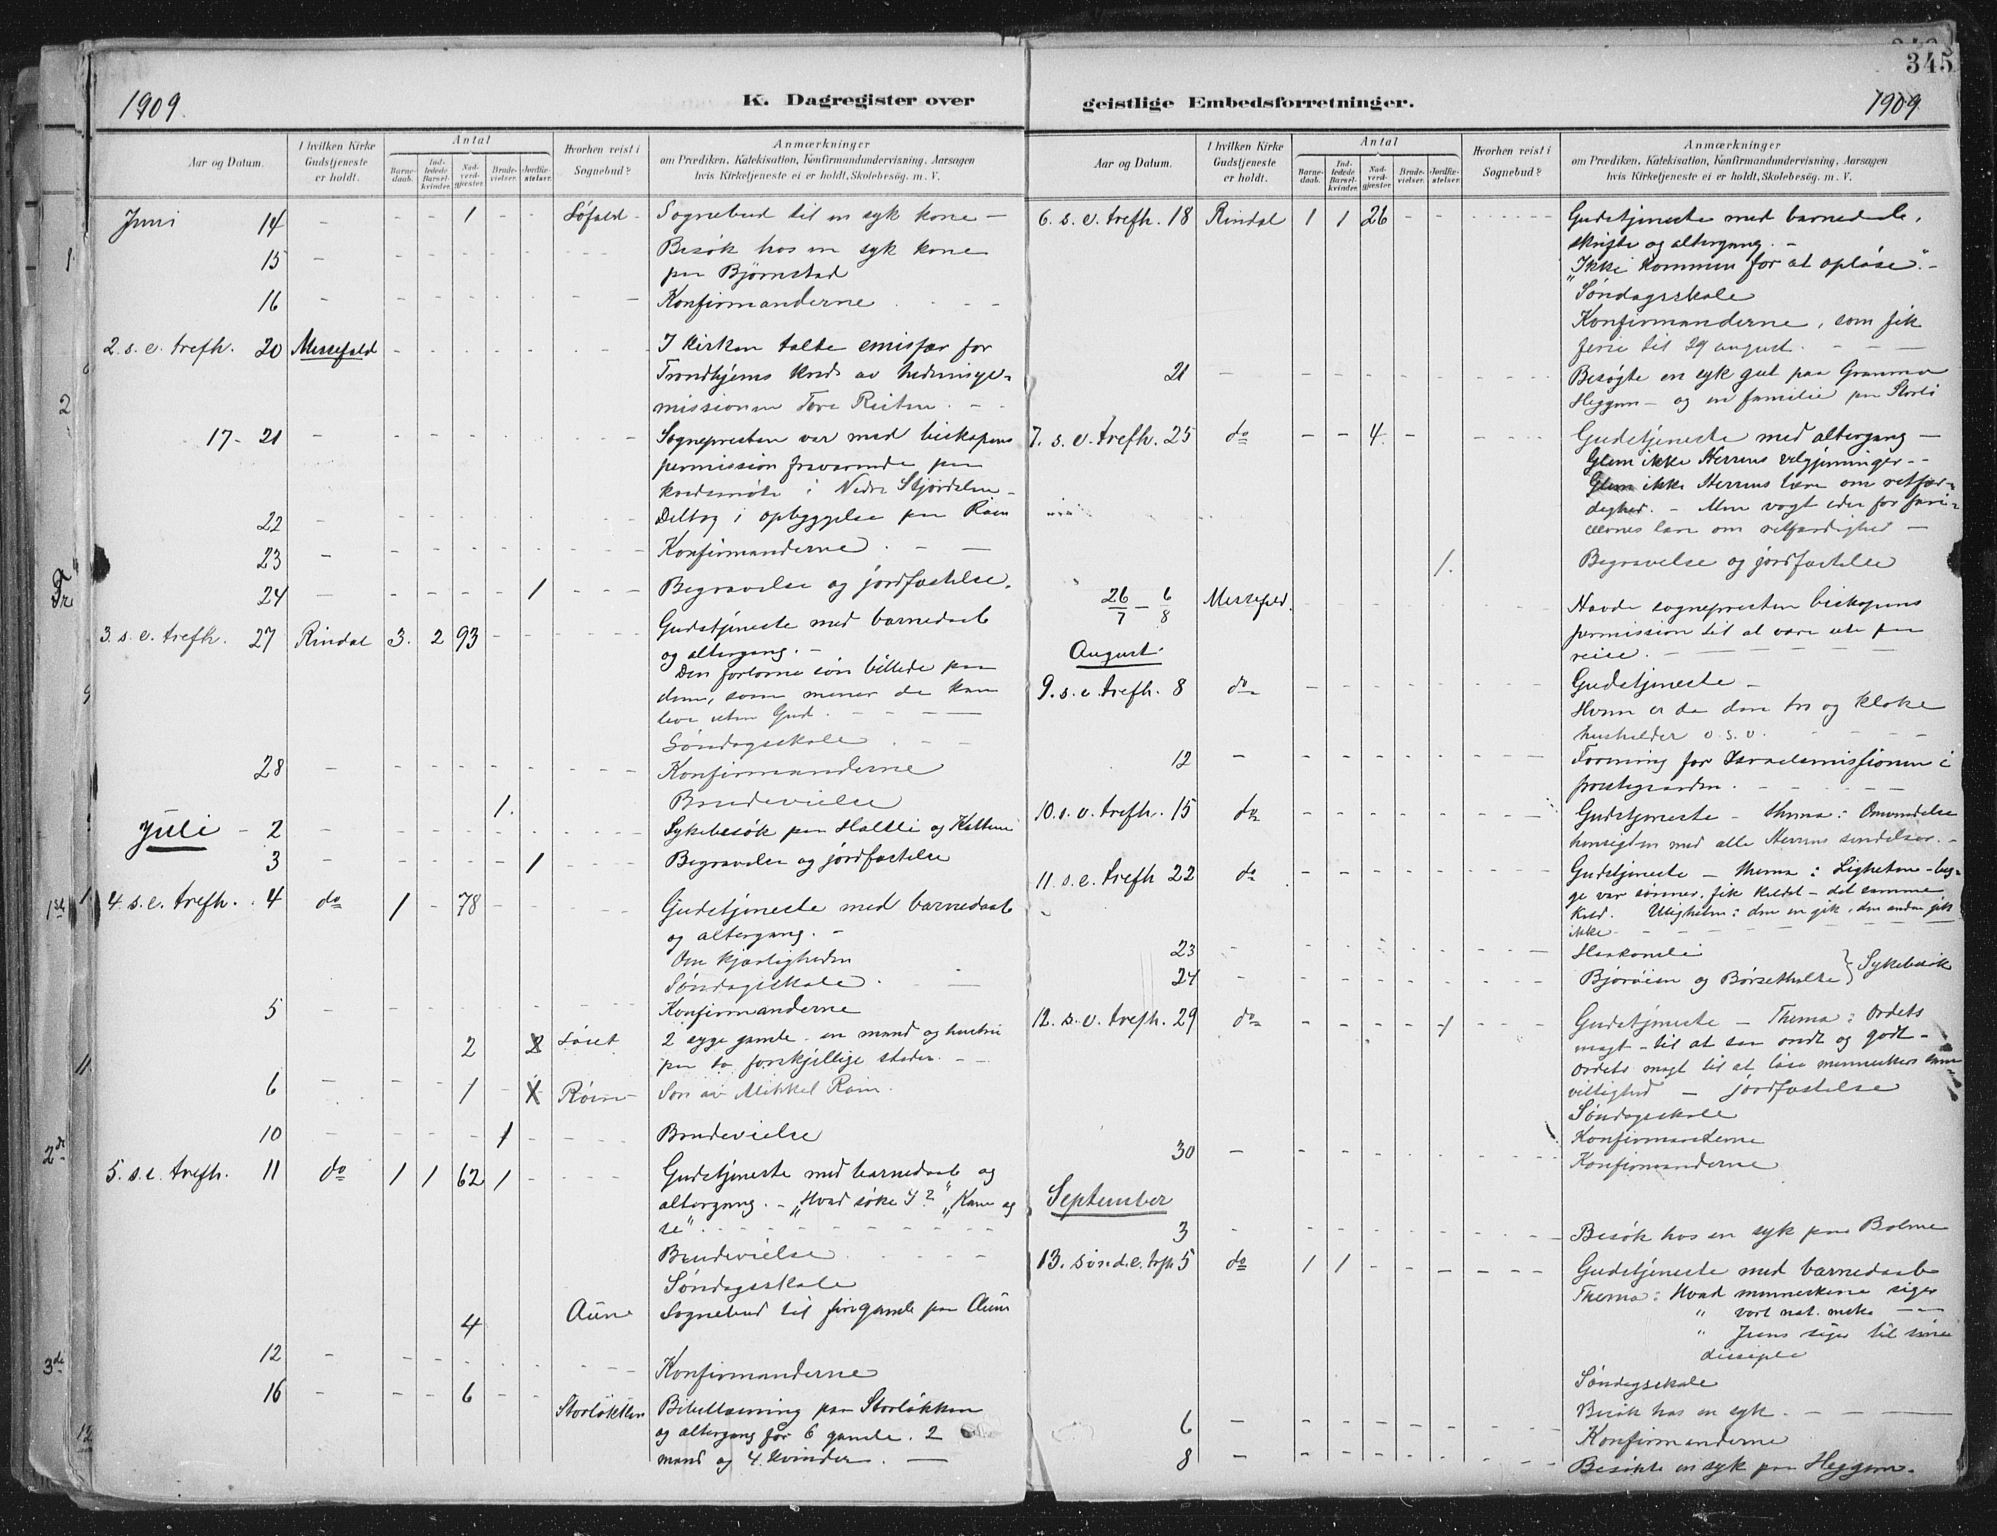 345
1909
K. Dagregister over
geistlige Embedsforretninger.
1909
Aar og Datum.
I hvilken Kirke Gudstjeneste er holdt.
Antal
Barnedaab.
Indledede Barselkvinder.
Nadverdgjester.
Brudevielser.
Jordfæstelser.
Hvorhen reist i Sognebud?
Anmærkninger
om Prædiken, Katekisation, Konfirmandundervisning, Aarsagen
hvis Kirketjeneste ei er holdt, Skolebesøg. m. V.
Juni 14 - - - 1 - - Løfald - Sognebud til en syk kone -
15 - Besøk hos en syk kone
paa Bjørnstad
16 - Konfirmanderne
2. s. e. trefh. 20 Messefald I kirken talte emisær for
Trondhjems kreds av
missionen Tore
17 - 21 Sognepresten var med biskopens
permission fraværende paa
kredsmøte i Nedre Stjørdalen -
22 - Deltog i opbyggelse paa Røen
23 - Konfirmanderne
24 - 1 Begravelse og jordfæstelse.
3. s. e. trefh. 27 Rindal 3. 2 93 - - Gudstjeneste med barnedaab
og altergang. -
Den fortorne søn billede paa
dem, som mener de kan
leve uten Gud.
Søndagsskole
28 - Konfirmanderne
1. Brudevielse
Juli - 2 Sykebesøk paa Haltli og
3 - 1 Begravelse og jordfæstelse
4. s. e. trefh. 4 do 1 - 78 - Gudstjeneste med barnedaab
og altergang. -
Om kjærligheden
Søndagsskole
5 - Konfirmanderne
2 Løset 2 syge gamle - en mand og hustru
paa to forskjellige steder. -
6 - 1 - X Røen - Søn av Mikkel Røen.
10 - 1 Brudevielse
5. s. e. trefh. 11 do 1 1 62 1 - Gudstjeneste med barnedaab og
altergang. - „Hvad søke I?" „Kom og
se".
Brudevielse
Søndagsskole
4 Aune Sognebud til fire gamle paa Aune
12 - Konfirmanderne
16 - 6 - Storløkken Bibellæsning paa Storløkken
og altergang for 6 gamle. 2
mænd og 4 kvinder. -
Aar og Datum.
I hvilken Kirke Gudstjeneste er holdt.
Antal
Barnedaab.
Indledede Barselkvinder.
Nadverdgjester.
Brudevielser.
Jordfæstelser.
Hvorhen reist i Sognebud?
Anmærkninger
om Prædiken, Katekisation, Konfirmandundervisning, Aarsagen
hvis Kirketjeneste ei er holdt, Skolebesøg. m. V.
6. s. e. trefh. 18 Rindal 1 1 26 - Gudstjeneste med barnedaab,
skrifte og altergang. -
„Ikke kommen for at opløse". -
Søndagsskole
Konfirmanderne, som fik
ferie til 29 august.
21 - Besøgte en syk gut paa
Heggem - og en familie paa
7. s. e. trefh. 25 do - - 4. - Gudstjeneste med altergang -
Glem ikke Herrens velgjerninger -
Glem ikke Herrens lære om retfær-
dighed. - Men vogt eder for fari-
sæernes lære om retfærdighed -
1. Begravelse og jordfæstelse
26/7 - 6/8 Messefald. Havde sognepresten biskopens
permission til at være ute paa
reise.
August
9. s. e. trefh. 8 do Gudstjeneste -
Hvem er da den tro og kloke
husholder o. s. v.
12 - Forening for Israelsmissionen i
prestegaarden.
10. s. e. trefh. 15 do Gudstjeneste - thema: Omvendelse
hensigten med alle Herrens sendelser. -
11. s. e. trefh 22 do Gudstjeneste - Thema: Ligheten - beg-
ge var sønner, fik kaldet - det samme
kald. Uligheten: den en gik, den anden gik
ikke
23 - Haakonsli
24 - Bjørøien og Børsetholte } Sykebesøk
12. s. e. trefh. 29 do - 1 Gudstjeneste - Thema: Ordets
magt - til at saa ondt og godt -
ordets magt til at løse menneskers
- jordfæstelse
Søndagsskole
Konfirmanderne
30 - Konfirmanderne
September
3 - Besøk hos en syk paa Bolme
13. sønd. e. trefh 5 do 1 1 - Gudstjeneste med barnedaab
Thema: Hvad menneskene siger
" vort
" Jesus siger til sine
disciple
Søndagsskole
Besøk hos en syk.
6 - Konfirmanderne
8 - Besøkte en syk paa Heggem.